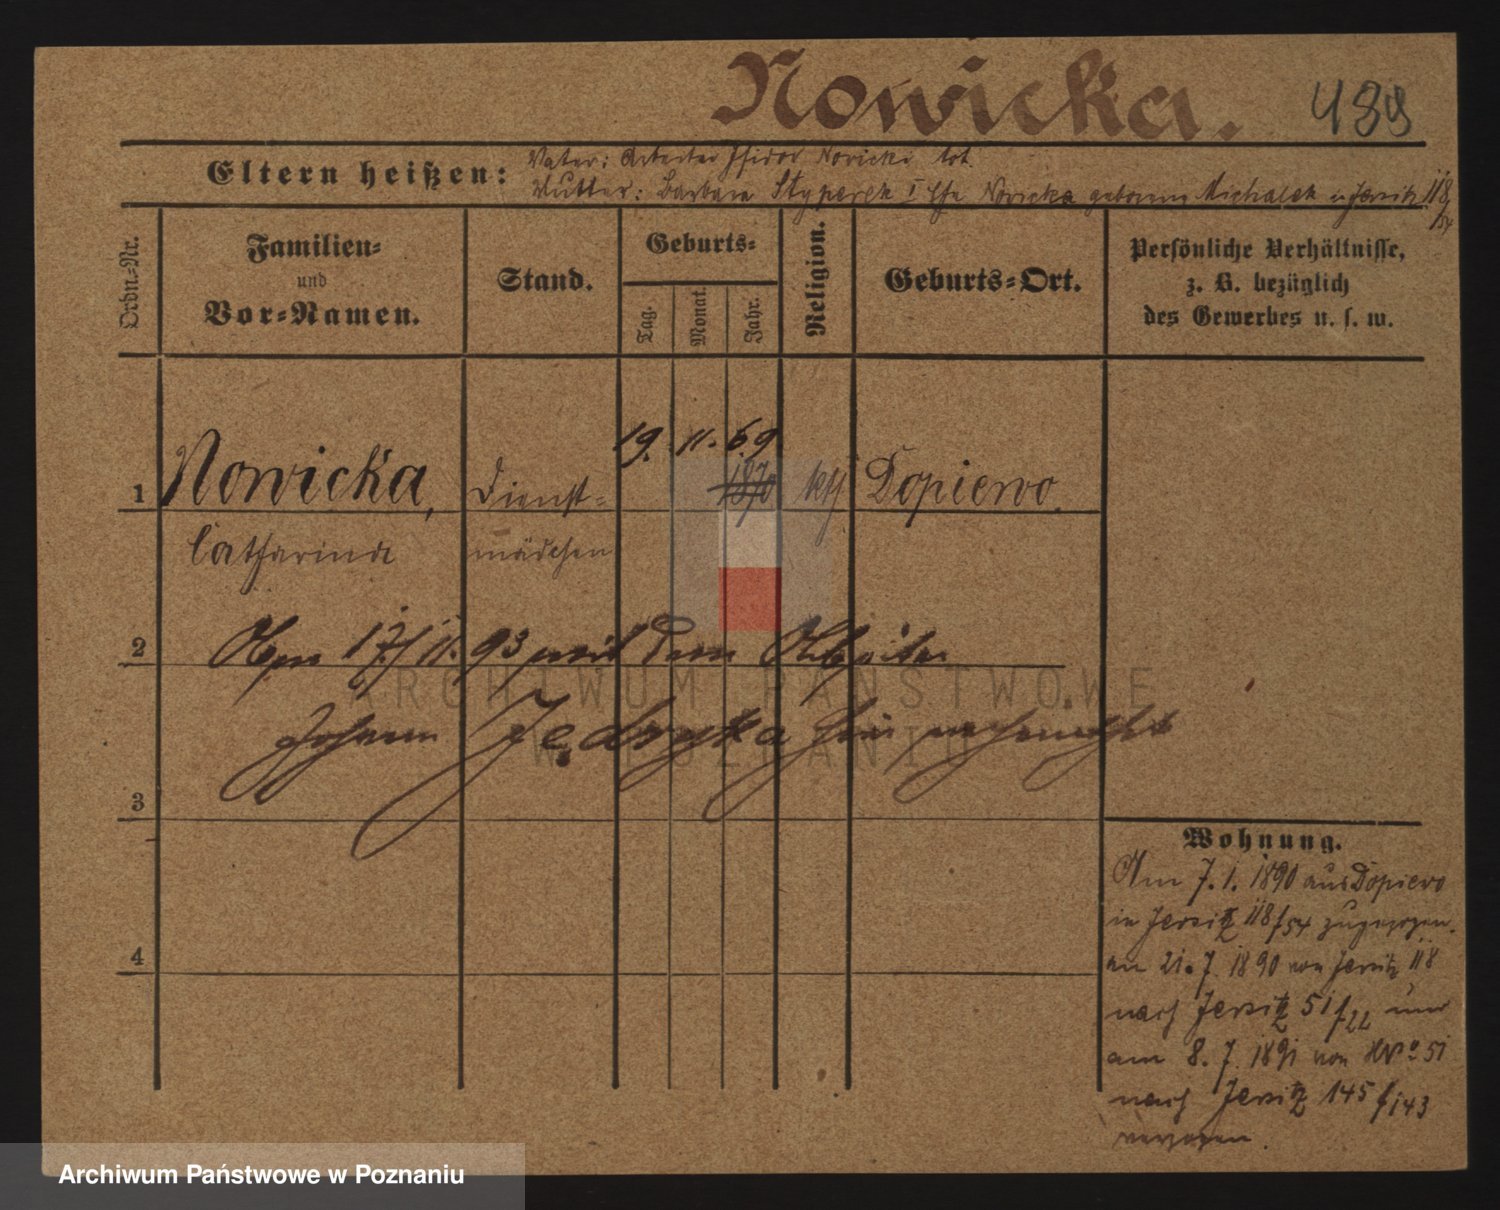 Nowicka. 489
Eltern heißen: Vater: Arbeiter Isidor Nowicki tot.
Mutter: Barbara Styperek I Ehe Nowicka geborene Michalek in Jersitz 118/54
Ordn.-Nr.
Familien-
und
Vor-Namen.
Stand.
Geburts-
Tag.
Monat.
Jahr.
Religion.
Geburts-Ort.
Persönliche Verhältnisse,
z. B. bezüglich
des Gewerbes u. s. w.
19. 11. 69
1 Nowicka, Dienst- 1870 kth Dopiewo.
Catharina mädchen
2 17/11. 93 mit dem Arbeiter
Johann Jędryka hier
3
4
Wohnung.
Am 7. 1. 1890 aus Dopiewo
in Jersitz 118/54 zugezogen.
am 21. 7. 1890 von Jersitz 118
nach Jersitz 51/22 und
am 8. 7. 1891 von HNº 51
nach Jersitz 145/143
verzogen.
ARCHIWUM PAŃSTWOWE
W POZNANIU
Archiwum Państwowe w Poznaniu